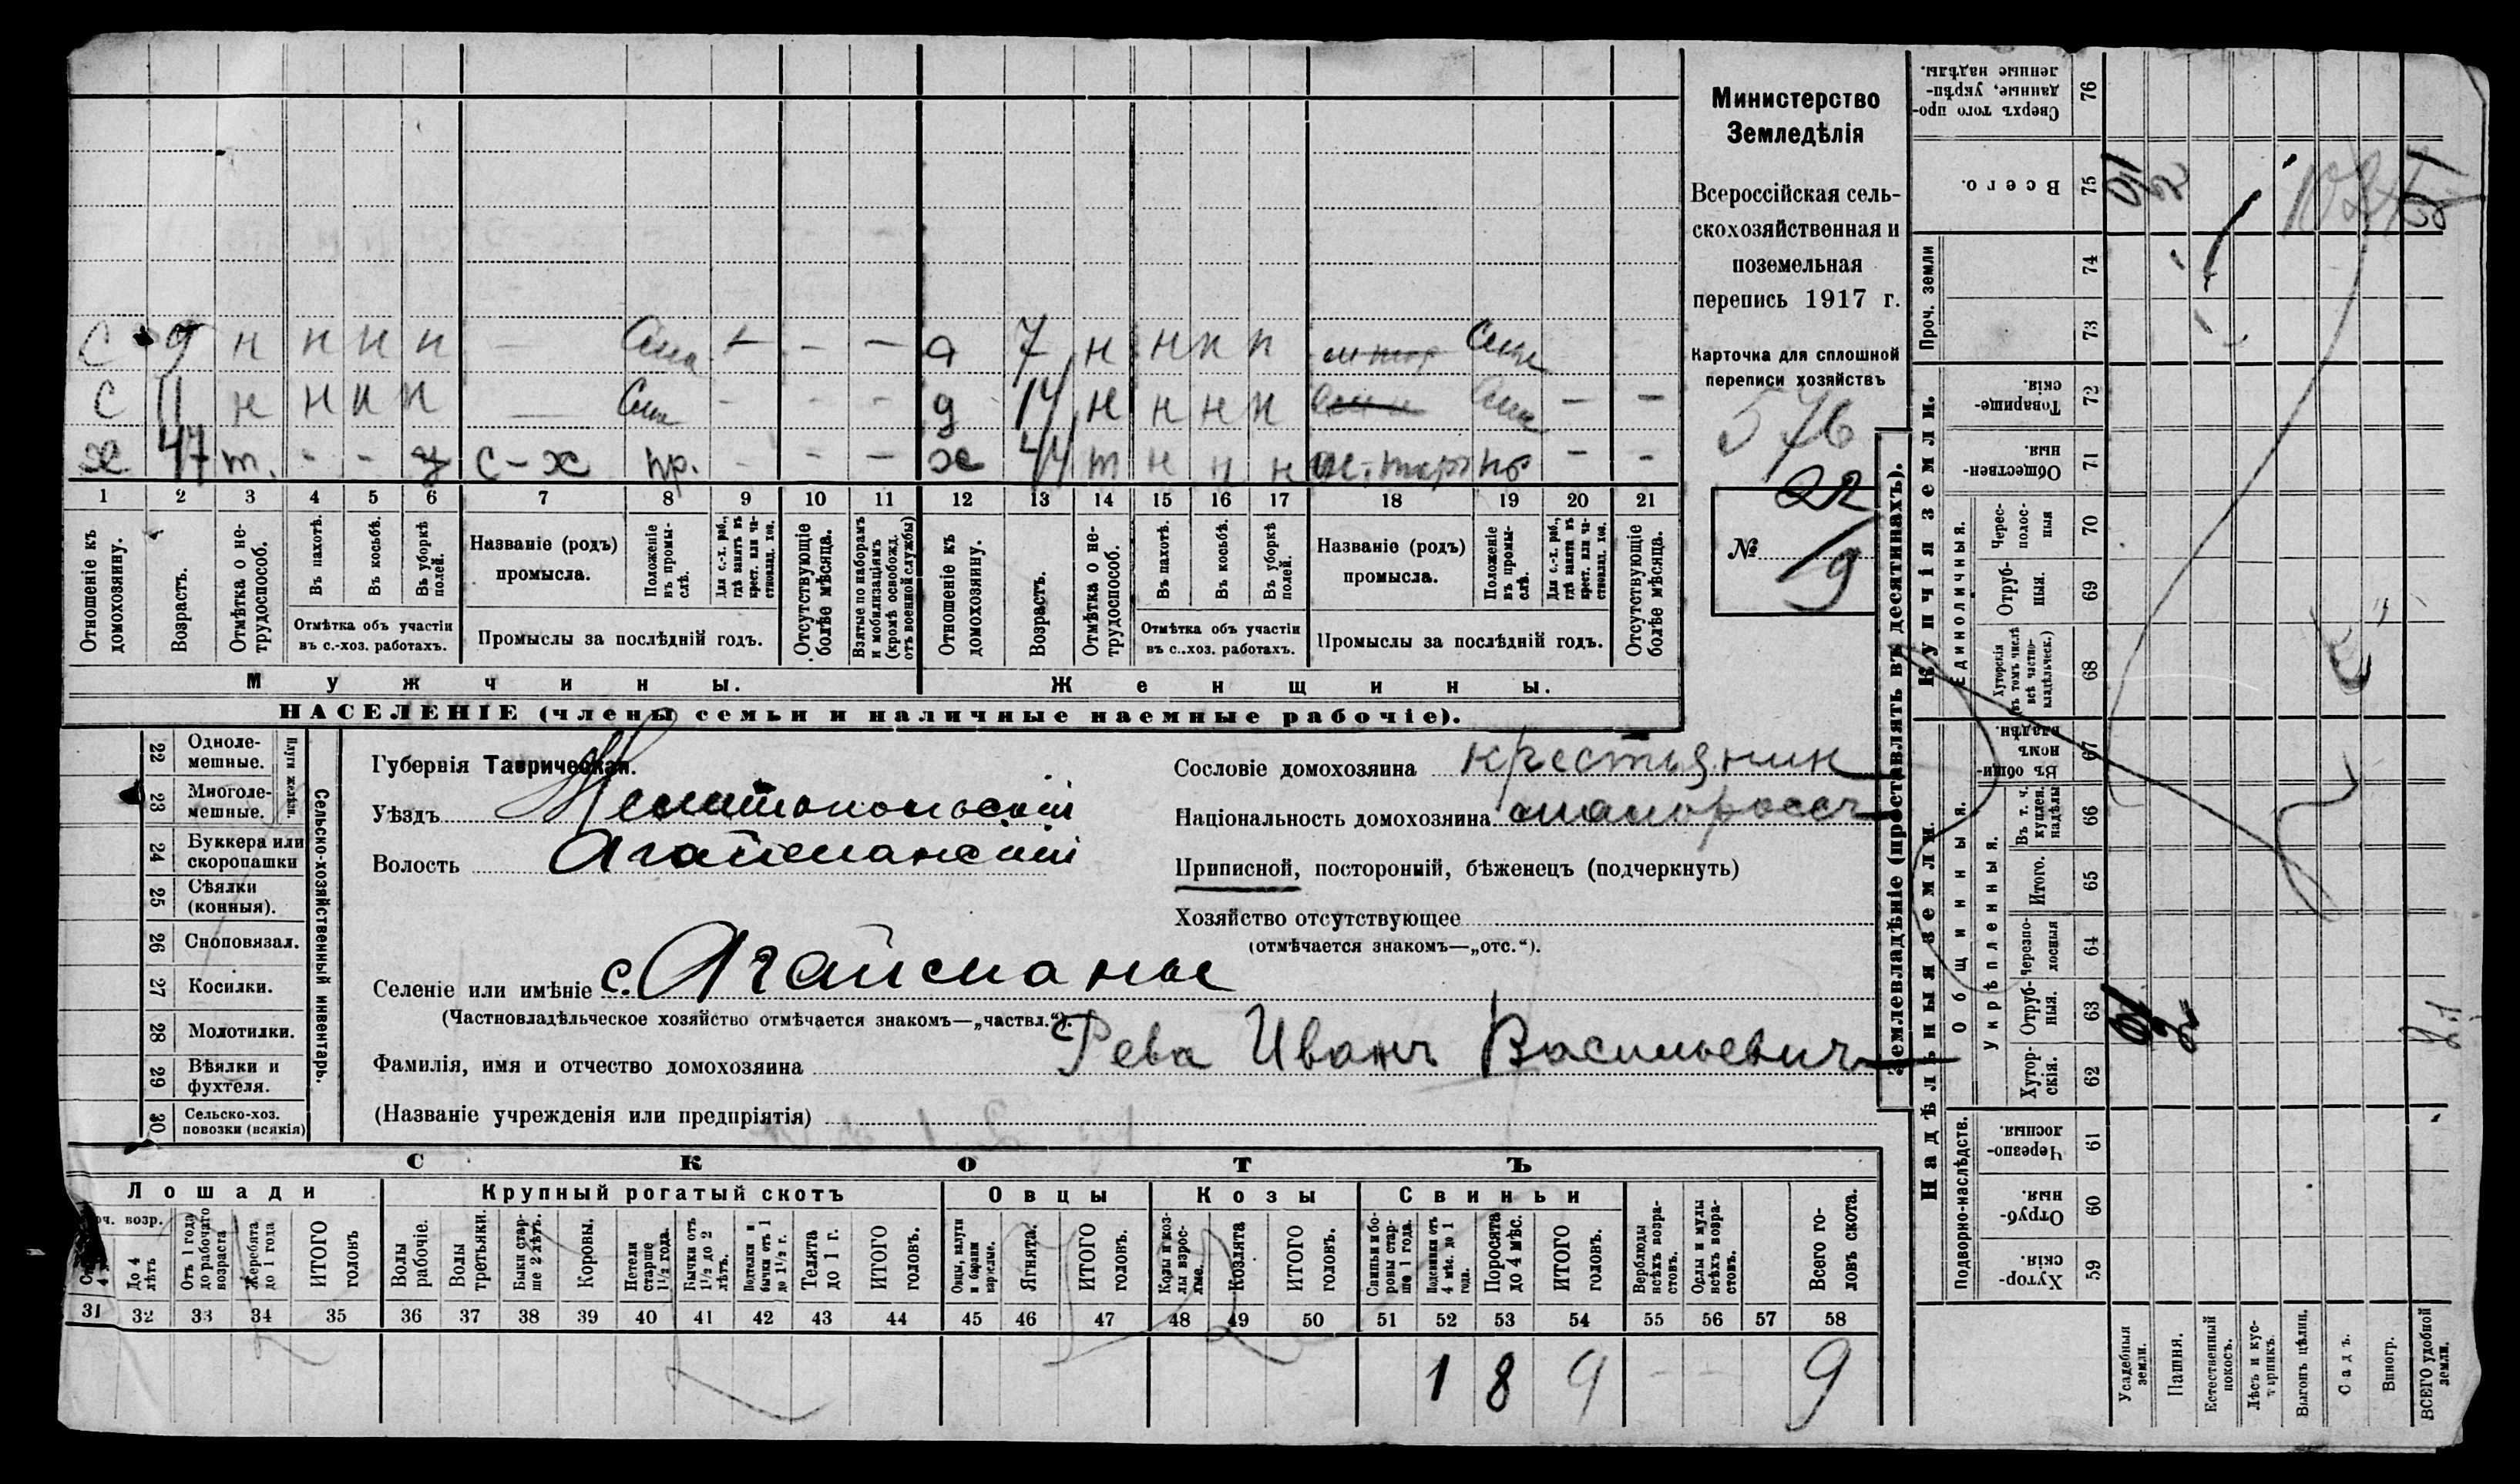 Министерство
Земледѣлія
Всероссійская сель-
скохозяйственная и
поземельная
перепись 1917 г.
Карточка для сплошной
переписи хозяйствъ
576
№ 22
19
С 9 н н н н — — — — д 7 н н н н
С 11 н н н н — — — — д 14 н н н н — —
х 47 т. - - у с-х пр. - - — х 44 т н н н пр - -
1 2 3 4 5 6 7 8 9 10 11 12 13 14 15 16 17 18 19 20 21
Отношеніе къ домохозяину.
Возрастъ.
Отмѣтка о не-трудоспособ.
Въ пахотѣ.
Въ косьбѣ.
Въ уборкѣ полей.
Отмѣтка объ участіи
въ с.-хоз. работахъ.
Названіе (родъ)
промысла.
Положеніе въ промы-слѣ.
Для с.-х. раб., гдѣ занятъ въ крест. или ча-стновлад. хоз.
Промыслы за послѣдній годъ.
Отсутствующіе болѣе мѣсяца.
Взятые по наборамъ и мобилизаціямъ (кромѣ освобожд. отъ военной службы)
Отношеніе къ домохозяину.
Возрастъ.
Отмѣтка о не-трудоспособ.
Въ пахотѣ.
Въ косьбѣ.
Въ уборкѣ полей.
Отмѣтка объ участіи
въ с..хоз. работахъ.
Названіе (родъ)
промысла.
Положеніе въ промы-слѣ.
Для с.-х. раб., гдѣ занята въ крест. или ча-стновлад. хоз.
Промыслы за послѣдній годъ.
Отсутствующіе болѣе мѣсяца.
Мужчины.
Женщины.
НАСЕЛЕНІЕ (члены семьи и наличные наемные рабочіе).
Сельско-хозяйственный инвентарь.
Плуги желѣзн.
22 Одноле-мешные.
23 Многоле-мешные.
24 Буккера или скоропашки
25 Сѣялки (конныя).
26 Сноповязал.
27 Косилки.
28 Молотилки.
29 Вѣялки и фухтеля.
30 Сельско-хоз. повозки (всякія)
Губернія Таврическая.
Уѣздъ Мелитопольскій
Волость Агайманскій
Селеніе или имѣніе с. Агайманы
(Частновладѣльческое хозяйство отмѣчается знакомъ—„частвл.“).
Фамилія, имя и отчество домохозяина Рева Иванъ Васильевичъ
(Названіе учрежденія или предпріятія)
Сословіе домохозяина крестьянин
Національность домохозяина малороссъ
Приписной, посторонній, бѣженецъ (подчеркнуть)
Хозяйство отсутствующее
(отмѣчается знакомъ—„отс.“).
СКОТЪ
Лошади
Крупный рогатый скотъ
Овцы
Козы
Свиньи
До 4 лѣтъ
Отъ 1 года до рабочаго возраста
Жеребята до 1 года
ИТОГО головъ
Волы рабочіе.
Волы третьяки.
Быки стар-ше 2 лѣтъ.
Коровы.
Нетели старше 1½ года.
Бычки отъ 1½ до 2 лѣтъ.
Подтелки и бычки отъ 1 до 1½ г.
Телята до 1 г.
ИТОГО головъ.
Овцы, валухи и бараны взрослые.
Ягнята.
ИТОГО головъ.
Козы и коз-лы взрос-лые.
Козлята
ИТОГО головъ.
Свиньи и бо-ровы стар-ше 1 года.
Подсвинки отъ 4 мѣс. до 1 года.
Поросята до 4 мѣс.
ИТОГО головъ.
Верблюды всѣхъ возра-стовъ.
Ослы и мулы всѣхъ возра-стовъ.
Всего го-ловъ скота.
31 32 33 34 35 36 37 38 39 40 41 42 43 44 45 46 47 48 49 50 51 52 53 54 55 56 57 58
1 8 9 - - 9
Землевладѣніе (проставлять въ десятинахъ).
Надѣльныя земли.
Купчія земли.
Проч. земли
Подворно-наслѣдств.
Общинныя.
Укрѣпленныя.
Единоличныя.
Сверхъ того про-данные, укрѣп-ленные надѣлы. 76
Всего. 75
74
73
Товарище-скія. 72
Обществен-ныя. 71
Черес-полос-ныя 70
Отруб-ныя. 69
Хуторскія (въ томъ числѣ всѣ частно-владѣльческ.) 68
Въ общи-номъ владѣн. 67
Въ т. ч. куплен. надѣлы 66
Итого. 65
Черезпо-лосныя 64
Отруб-ныя. 63
Хутор-скія. 62
Черезпо-лосныя. 61
Отруб-ныя. 60
Хутор-скія. 59
Усадебныя земли.
Пашня.
Естественный покосъ.
Лѣсъ и кус-тарникъ.
Выгонъ цѣлин.
Садъ.
Виногр.
ВСЕГО удобной земли.